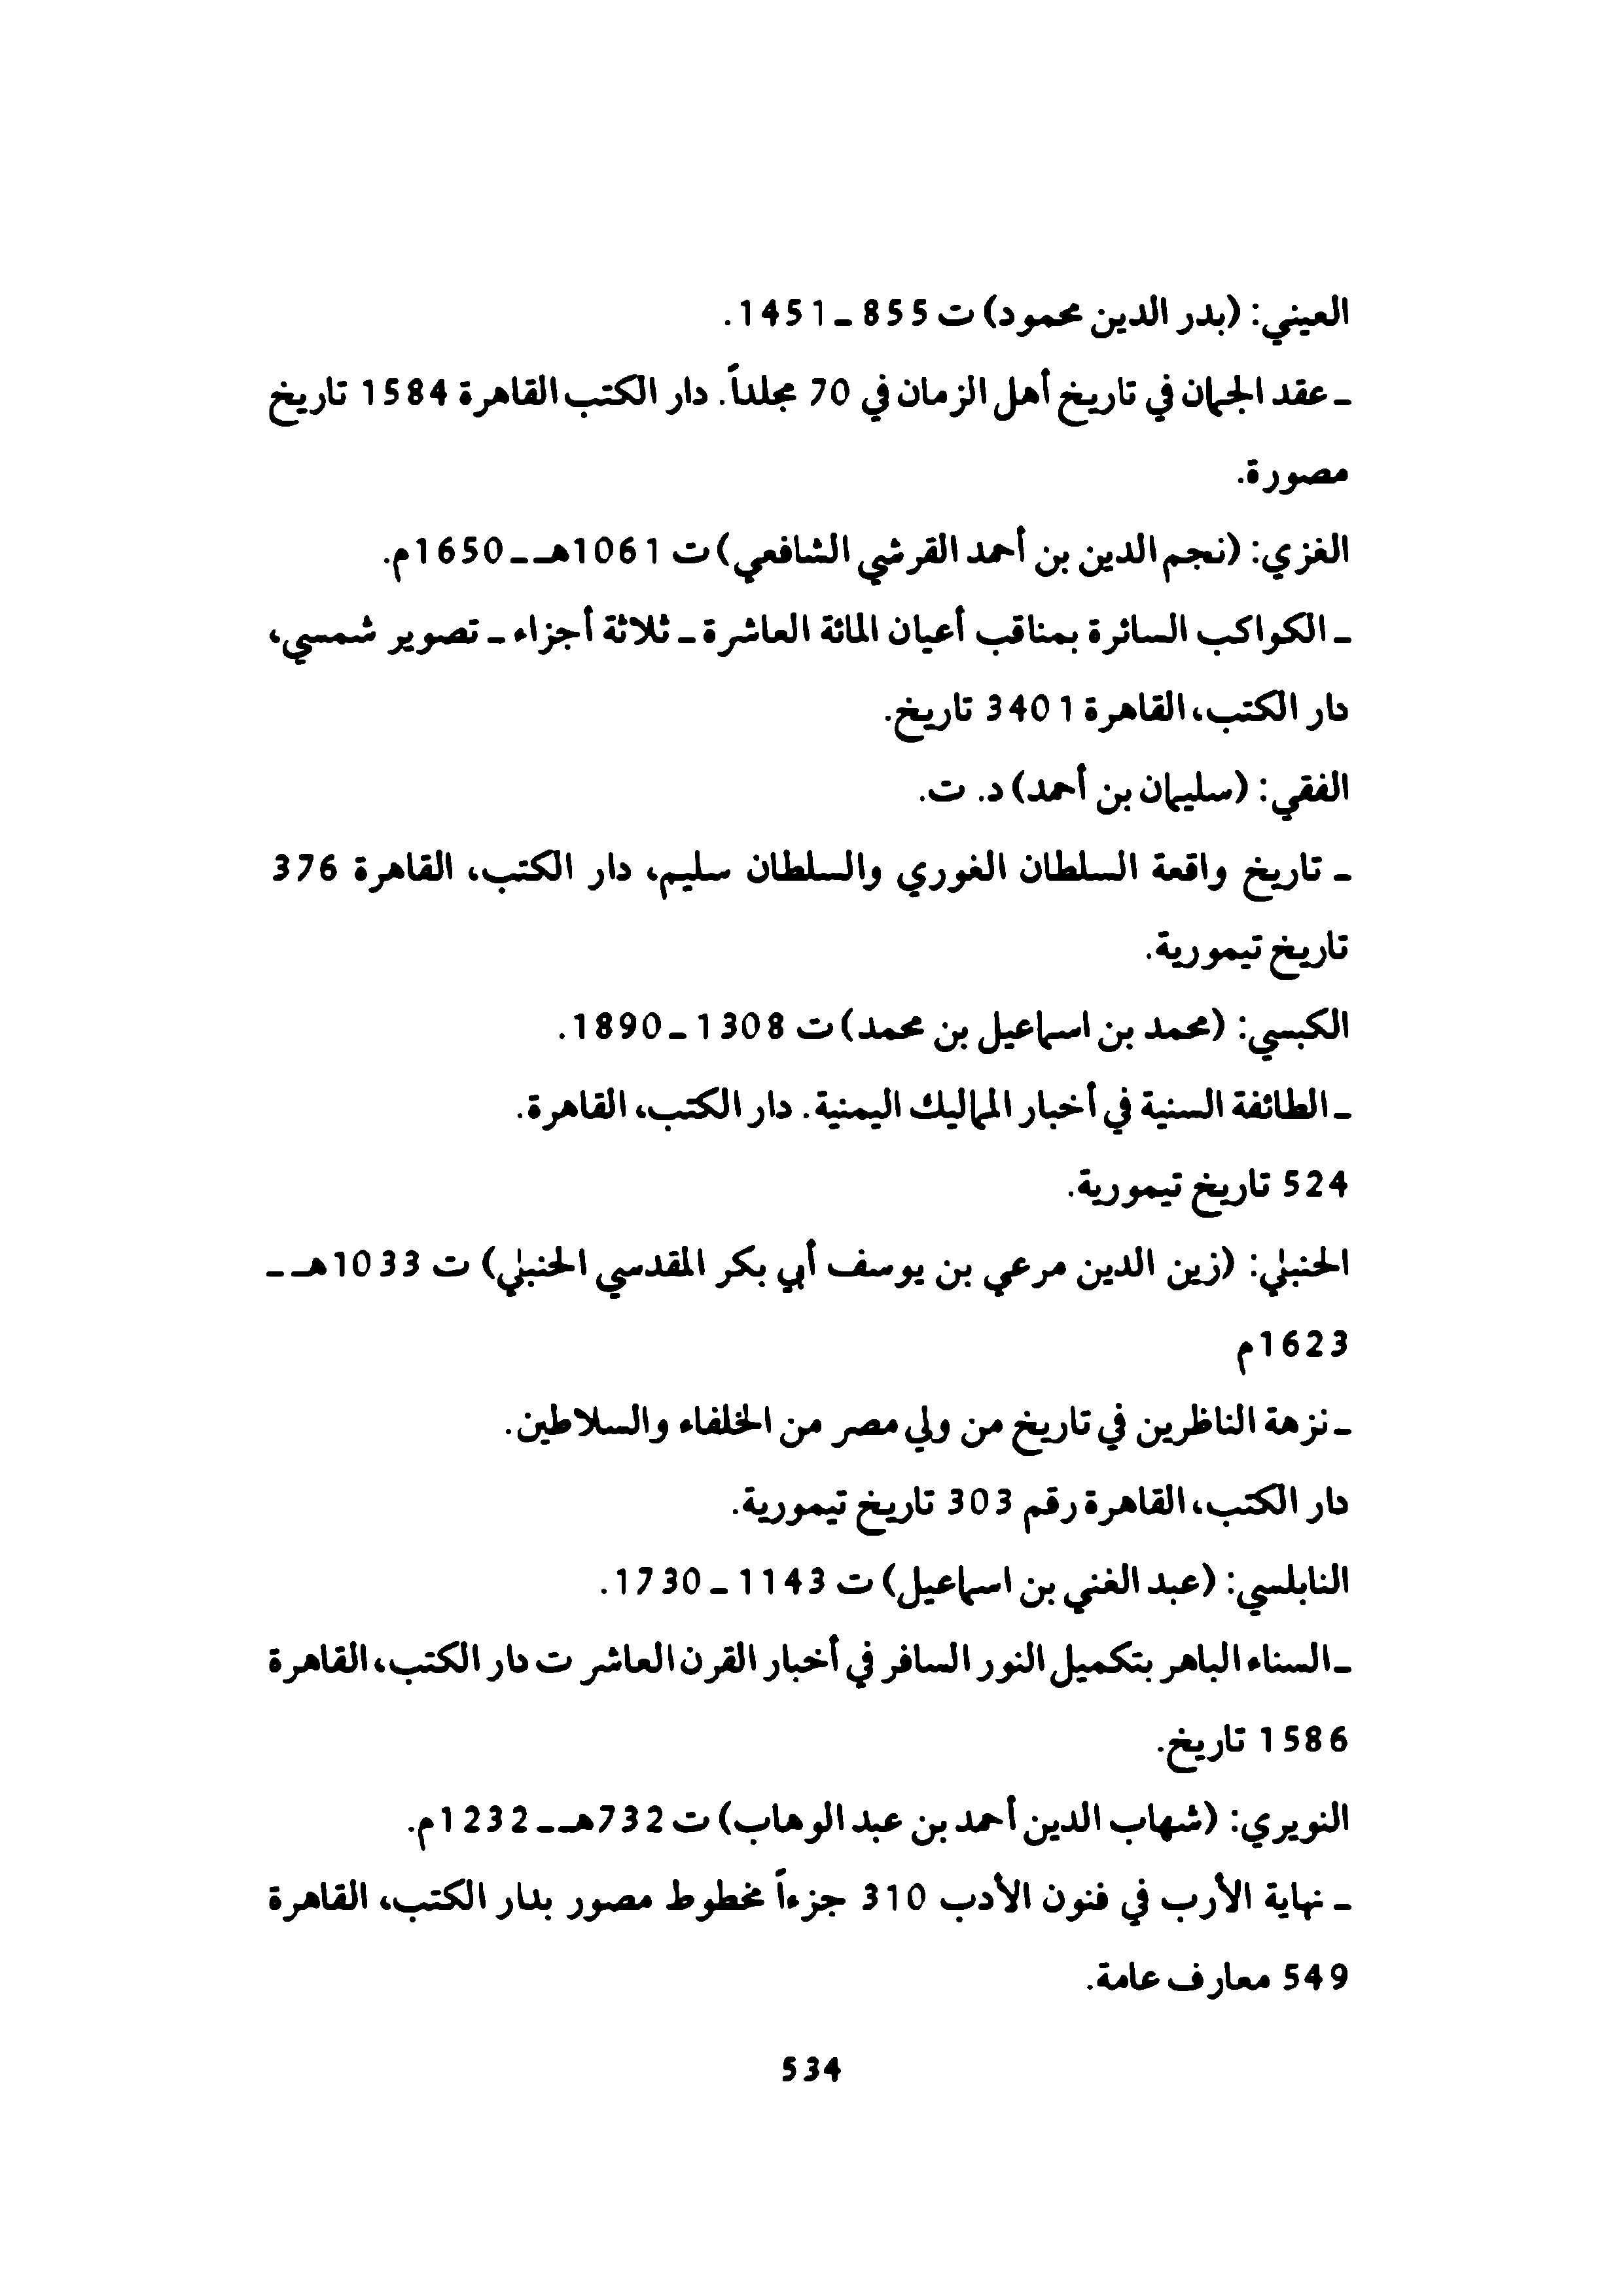 العيني: (بدر الدين محمود) ت 855 ـ 1451.
ـ عقد الجمان في تاريخ أهل الزمان في 70 مجلداً. دار الكتب القاهرة 1584 تاريخ
مصورة.
الغزي: (نجم الدين بن أحمد القرشي الشافعي) ت 1061هـ ـ 1650م.
ـ الكواكب السائرة بمناقب أعيان المائة العاشرة ـ ثلاثة أجزاء ـ تصوير شمسي،
دار الكتب، القاهرة 3401 تاريخ.
الفقي: (سليمان بن أحمد) د. ت.
ـ تاريخ واقعة السلطان الغوري والسلطان سليم، دار الكتب، القاهرة 376
تاريخ تيمورية.
الكبسي: (محمد بن اسماعيل بن محمد) ت 1308 ـ 1890.
ـ الطائفة السنية في أخبار المماليك اليمنية. دار الكتب، القاهرة.
524 تاريخ تيمورية.
الحنبلي: (زين الدين مرعي بن يوسف أبي بكر المقدسي الحنبلي) ت 1033هـ ـ
1623م
ـ نزهة الناظرين في تاريخ من ولي مصر من الخلفاء والسلاطين.
دار الكتب، القاهرة رقم 303 تاريخ تيمورية.
النابلسي: (عبد الغني بن اسماعيل) ت 1143 ـ 1730.
ـ السناء الباهر بتكميل النور السافر في أخبار القرن العاشر ت دار الكتب، القاهرة
1586 تاريخ.
النويري: (شهاب الدين أحمد بن عبد الوهاب) ت 732هـ ـ 1232م.
ـ نهاية الأرب في فنون الأدب 310 جزءاً مخطوط مصور بدار الكتب، القاهرة
549 معارف عامة.
534